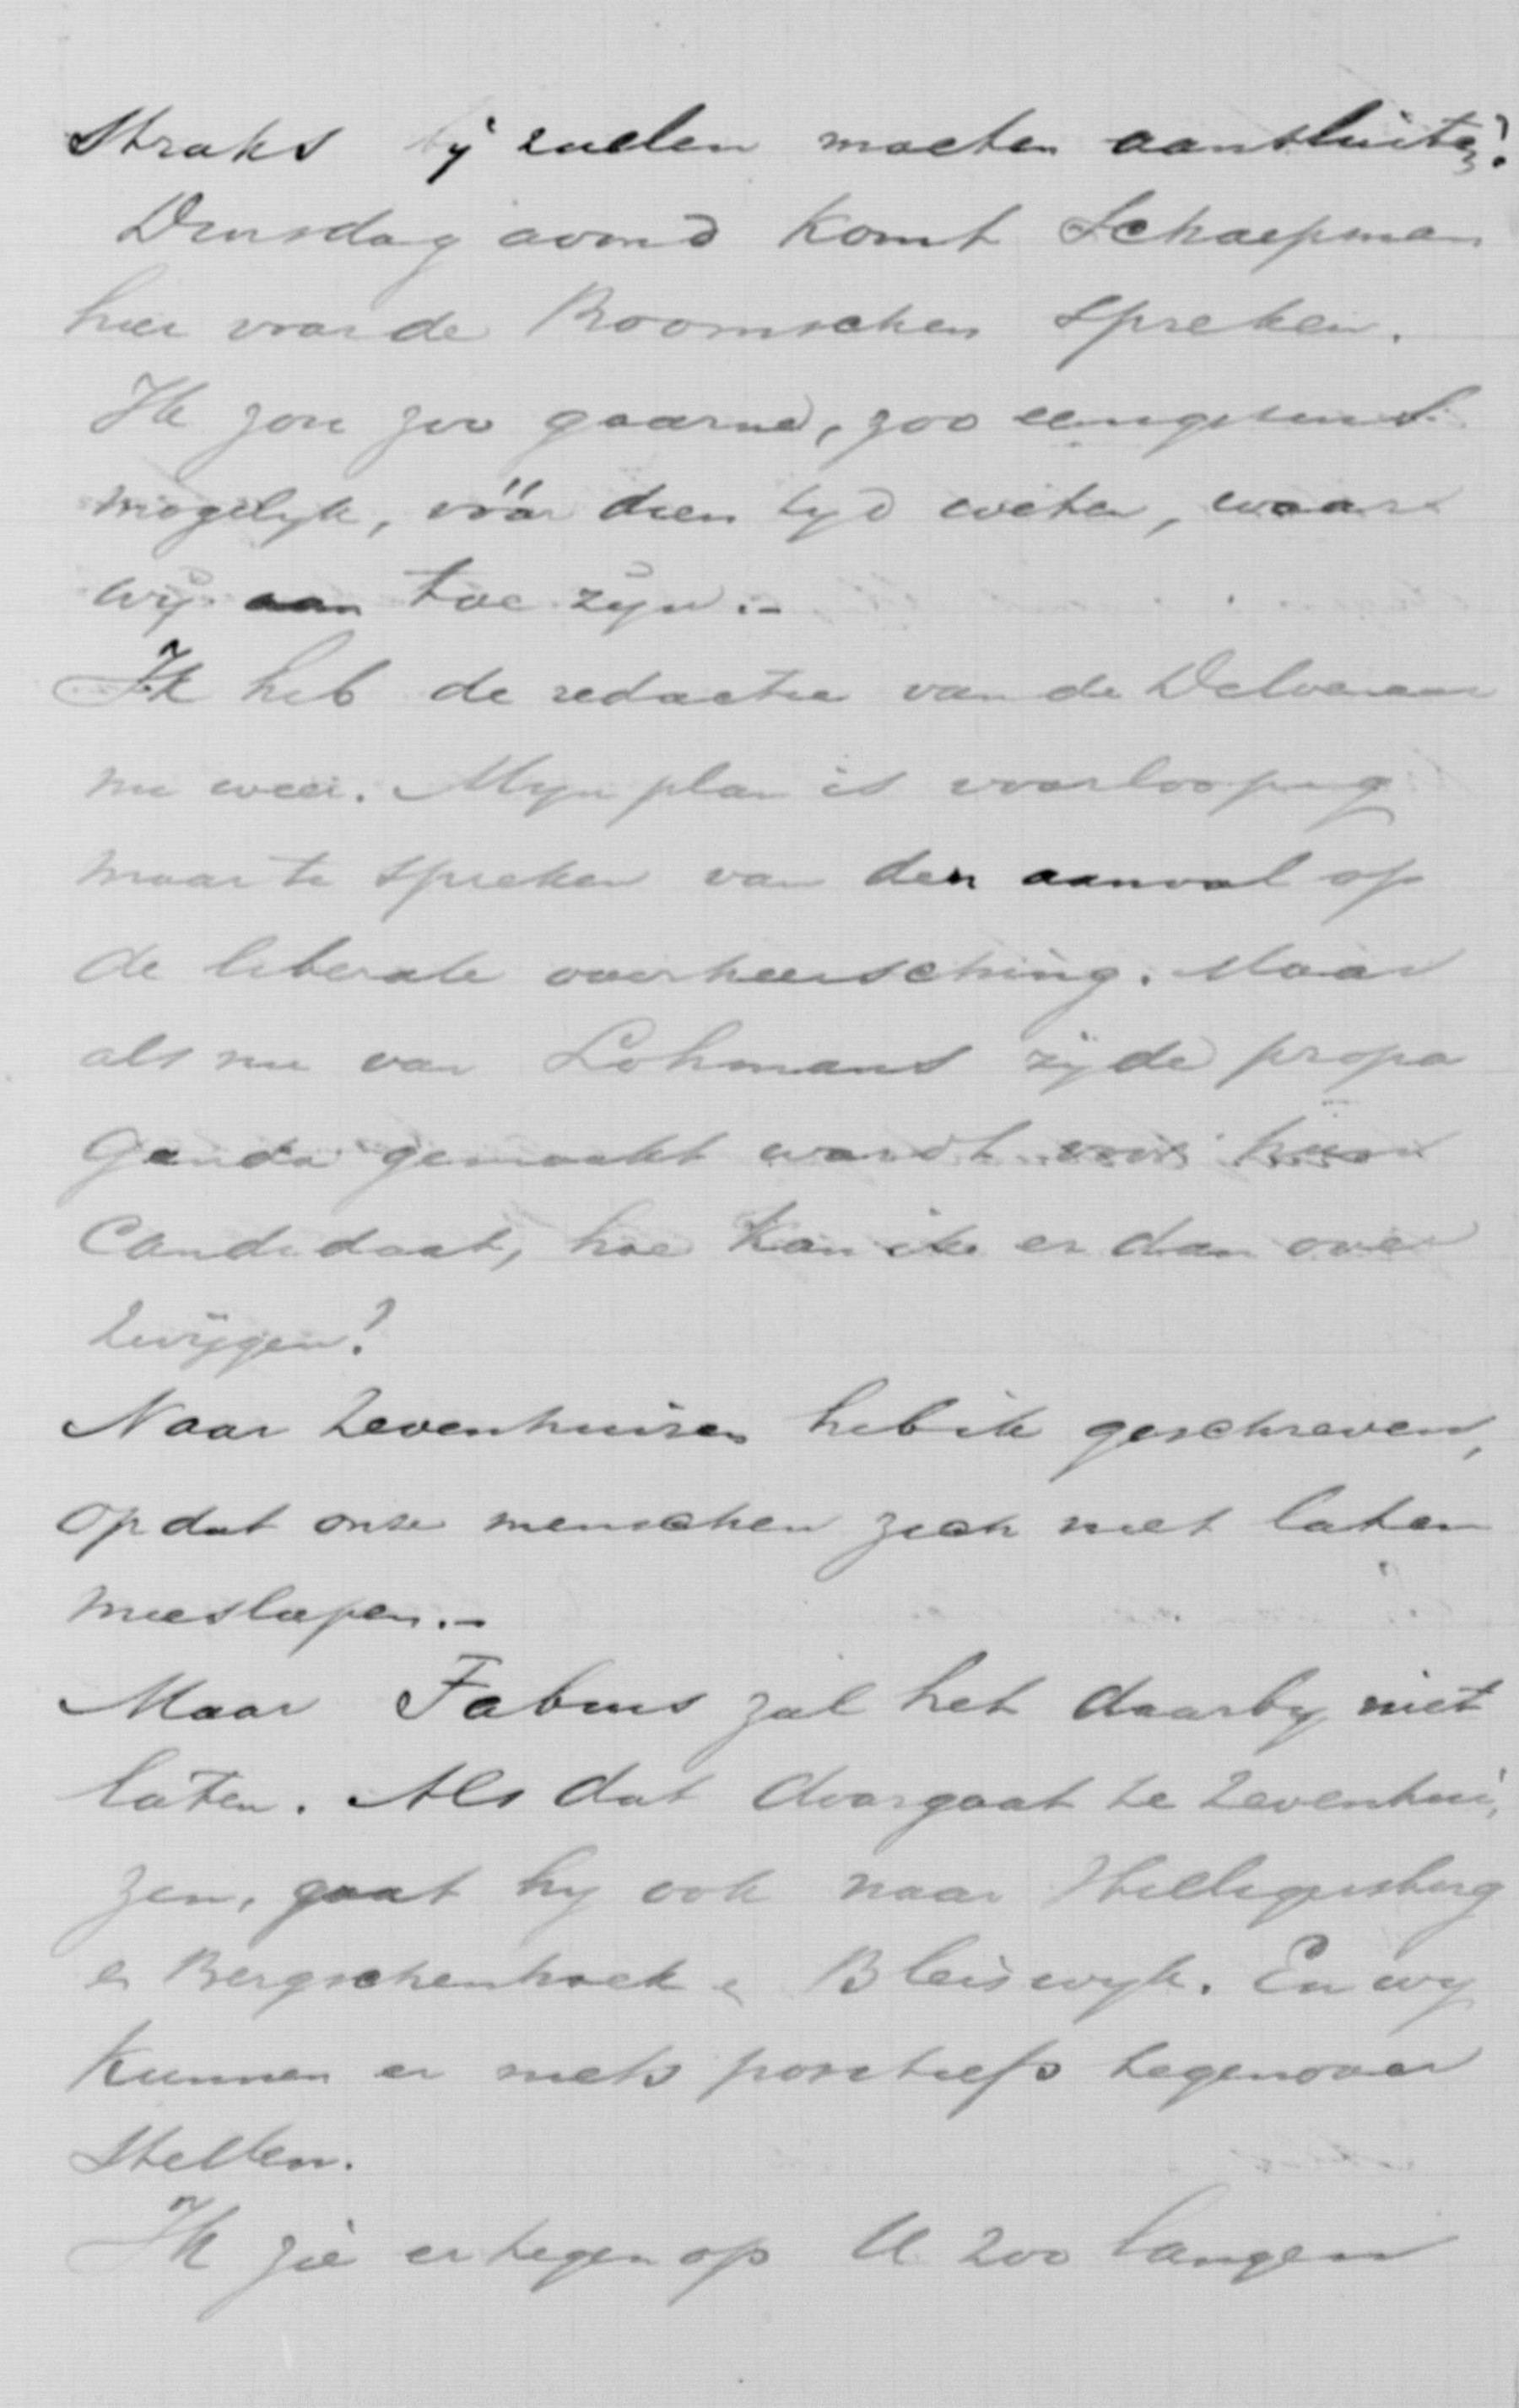 Straks zullen moeten aansluiten?
Dinsdag avond komt Schaepman
hier voor de Roomschen spreken.
Ik zou zoo gaarne, zoo eenigszins
mogelyk, vóór dien tyd weten, waar
wij aan toe zijn.-
Ik heb de redactie van de
nu weer. Myn plan is voorloopig
maar te spreken van den aanval op
de liberale overheersching. Maar
als nu van Lohmans zijde propa
ganda gemaakt wordt voor hun
Candidaat, hoe kan ik er dan over
zwijgen?
Naar Zevenhuizen heb ik geschreven,
opdat onze menschen zich niet laten
meeslepen.-
Maar Fabius zal het daarby niet
laten. Als dat doorgaat te Zevenhui,
zen, gaat hy ook naar Hillegersberg
en Bergschenhoek en Bleiswyk. En wy
kunnen er niets positiefs tegenover
stellen.
Ik zie er tegen op U zoo langen